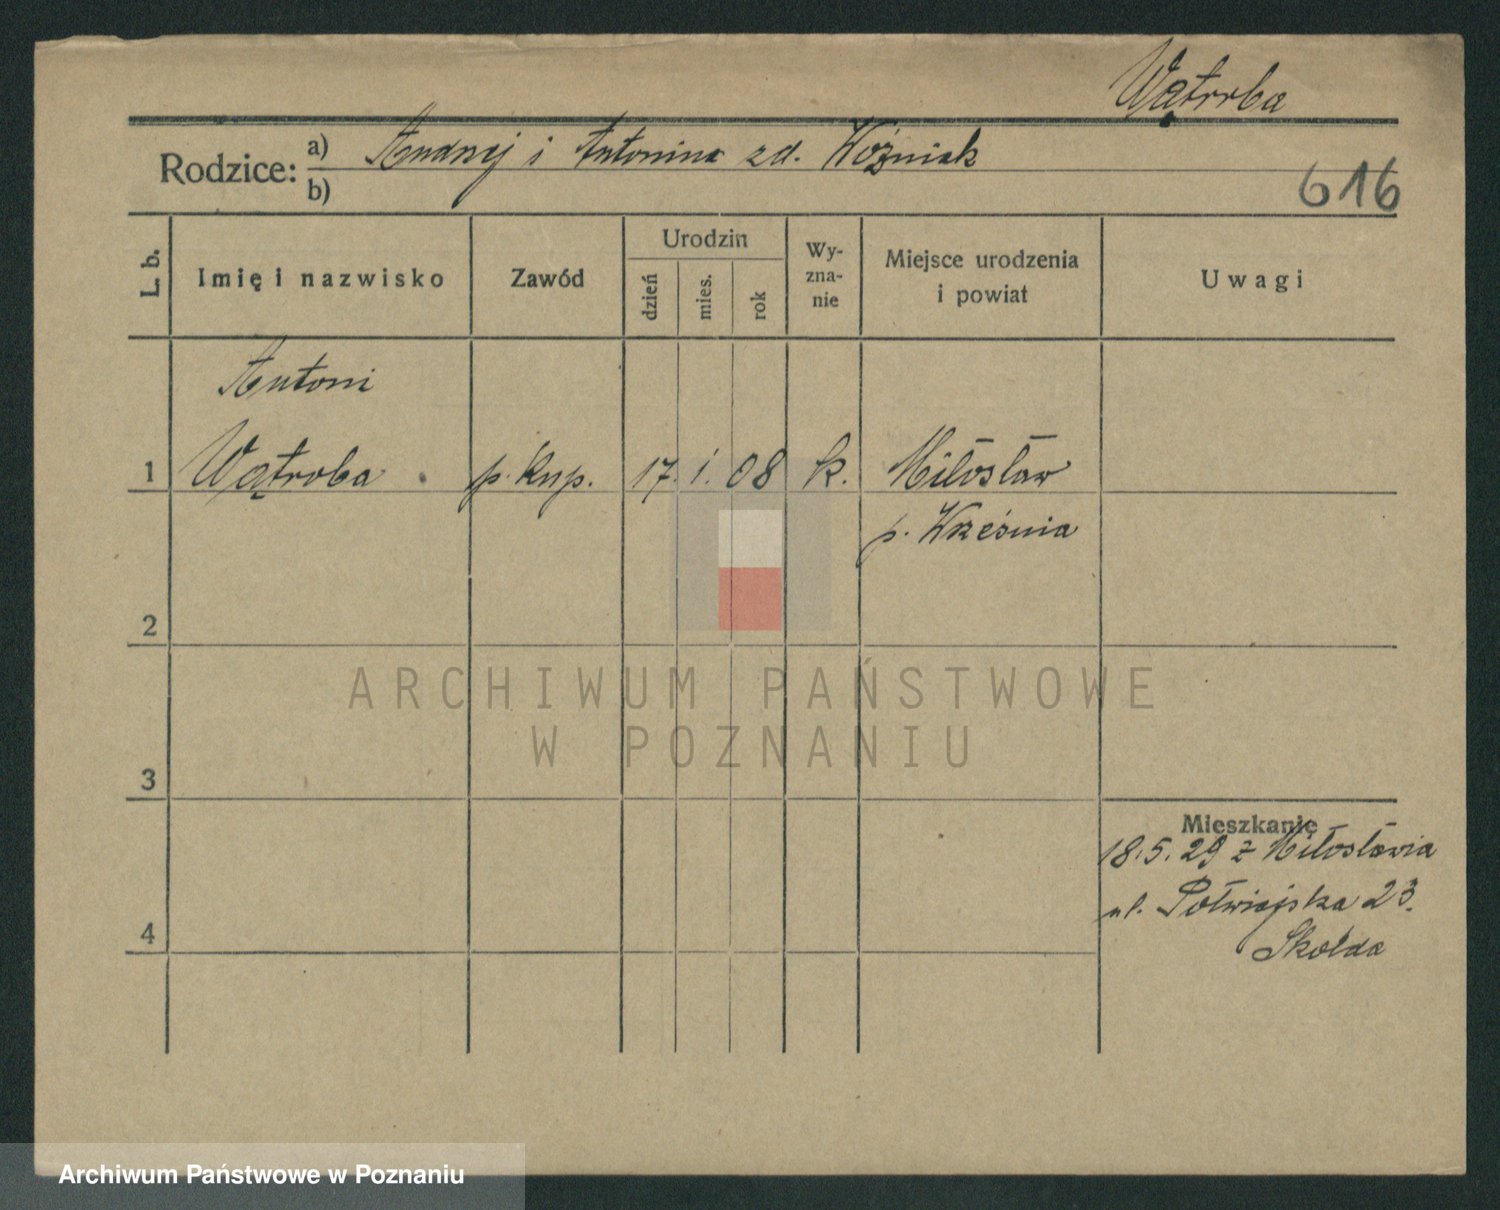 Wątroba
Rodzice: a) Andrzej i Antonina zd. Woźniak
b)
616
L. b.
Imię i nazwisko
Zawód
Urodzin
dzień
mies.
rok
Wy-
zna-
nie
Miejsce urodzenia
i powiat
Uwagi
Antoni
1 Wątroba p. kup. 17. 1. 08 k. Miłosław
p. Września
2
3
4
Mieszkanie
18.5.29 z Miłosławia
ul. Półwiejska 23.
Skołda
ARCHIWUM PAŃSTWOWE
W POZNANIU
Archiwum Państwowe w Poznaniu